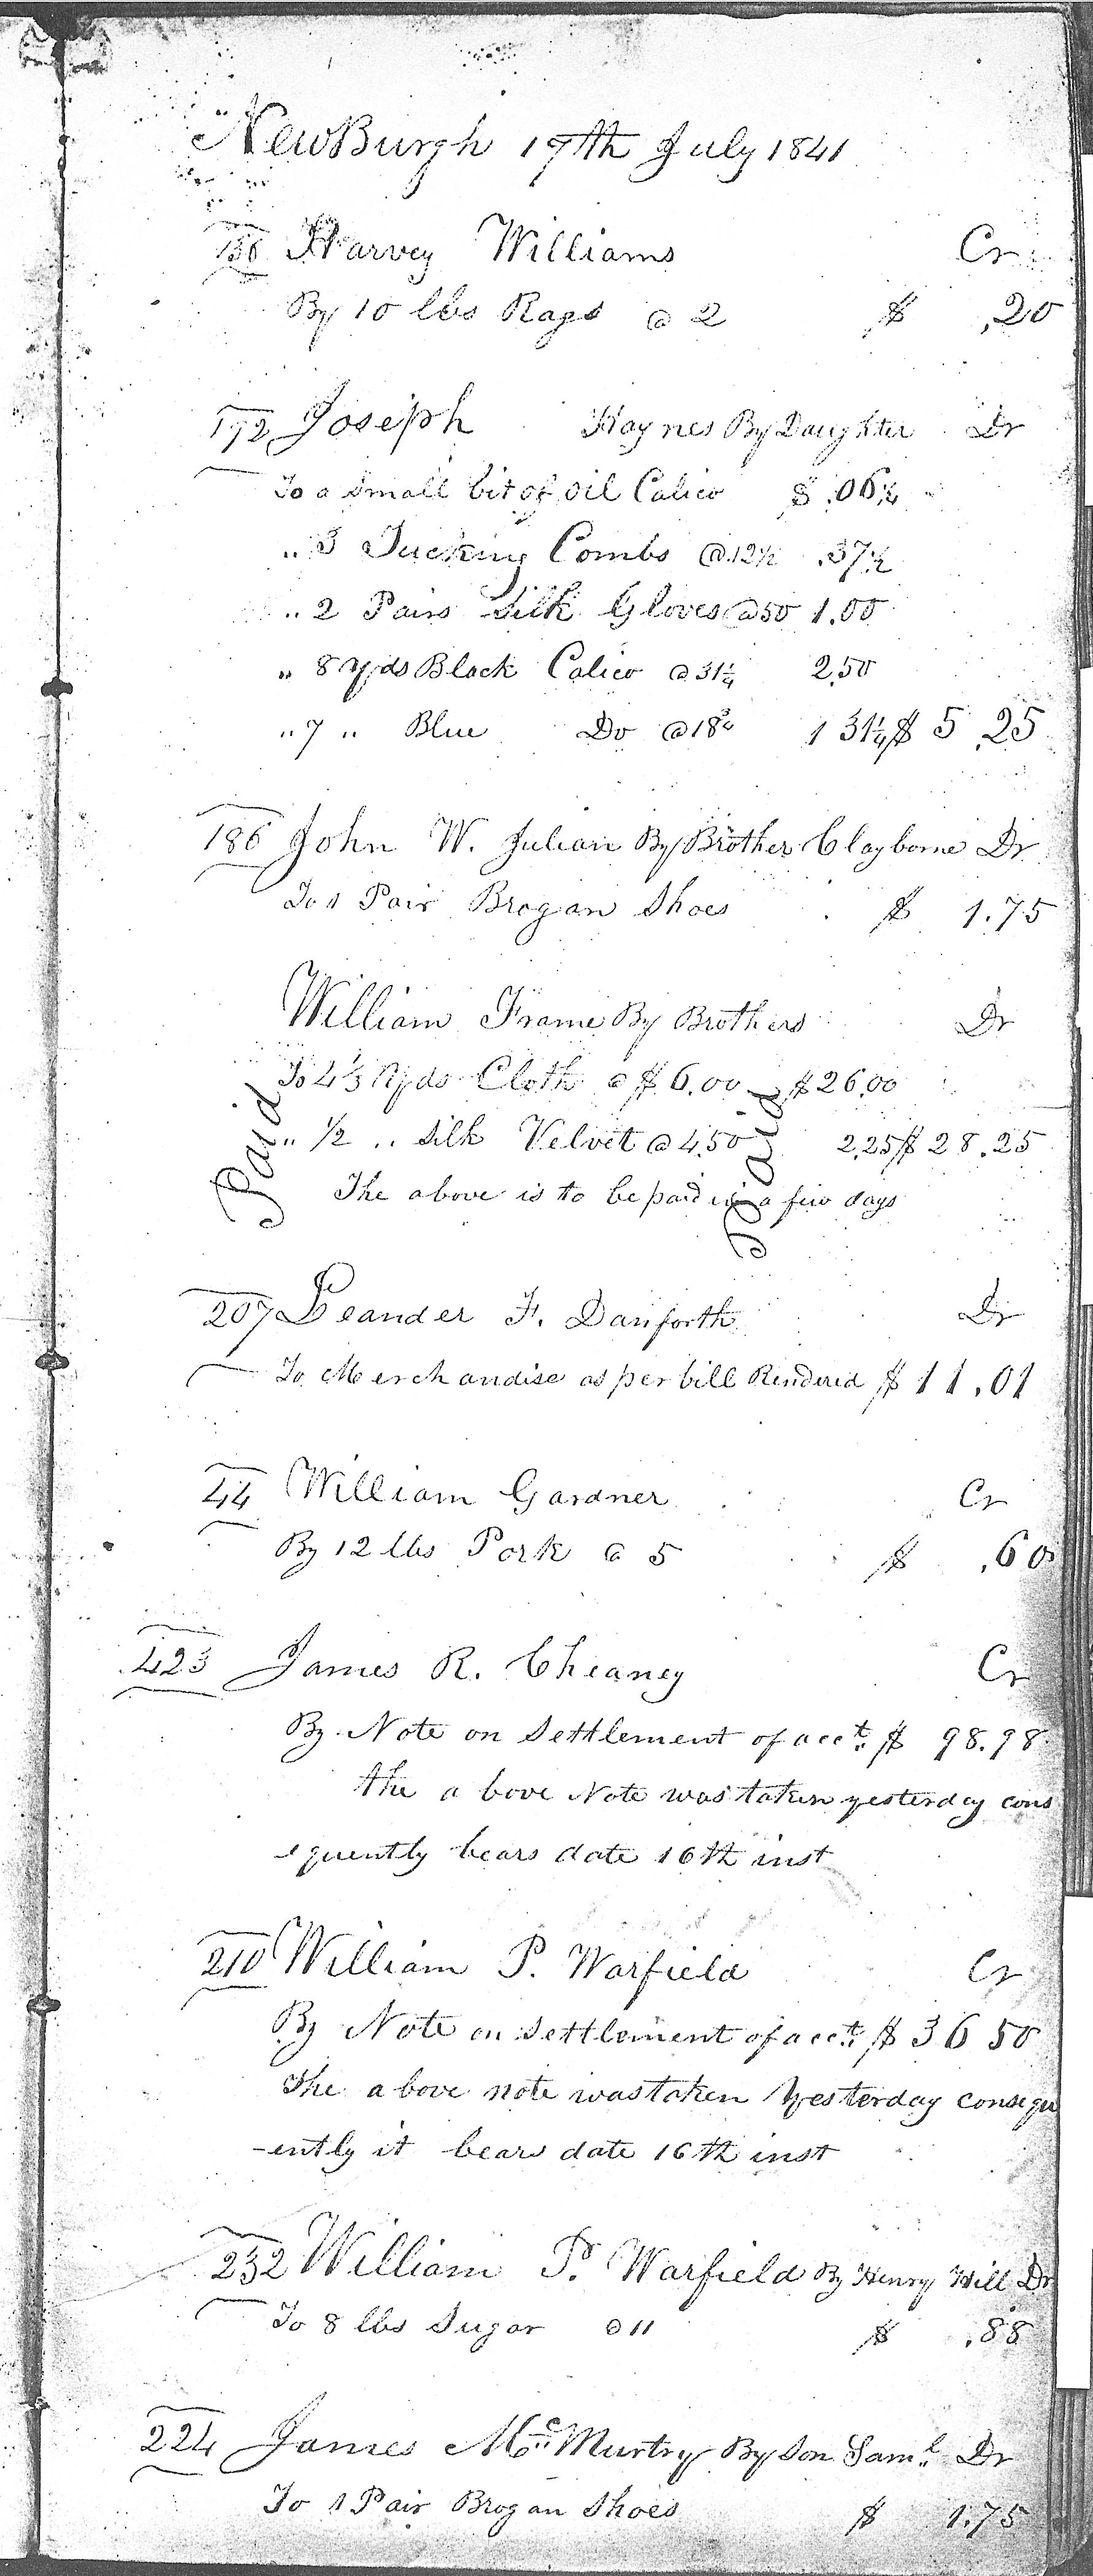 NewBurgh 17th July 1841
156 Harvey Williams Cr
By 10 lbs Rags @ 2 $ .20
192 Joseph Haynes By Daughter Dr
To a small bit of oil Calico $ .06¼
" 3 Tucking Combs @ 12½ .37½
" 2 Pairs Silk Gloves @ 50 1.00
" 8 Yds Black Calico @ 31¼ 2.50
" 7 " Blue Do @ 18¾ 1 31¼ $ 5.25
186 John W. Julian By Brother Clayborne Dr
To 1 Pair Brogan Shoes $ 1.75
William Frame By Brothers Dr
To 4⅓ Yds Cloth @ $ 6.00 $ 26.00
" ½ " Silk Velvet @ 4.50 2.25 $ 28.25
The above is to be paid in a few days
Paid
Paid
207 Leander F. Danforth Dr
To Merchandise as per bill Rendered $ 11.01
44 William Gardner Cr
By 12 lbs Pork @ 5 $ .60
423 James R. Cheaney Cr
By Note on Settlement of acct. $ 98.98
the above Note was taken yesterday cons
equently bears date 16th inst
210 William P. Warfield Cr
By Note on Settlement of acct. $ 36 50
The above note was taken Yesterday consequ
-ently it bears date 16th inst
232 William P. Warfield By Henry Hill Dr
To 8 lbs Sugar @ 11 $ .88
224 James Mc Murtry By Son Saml. Dr
To 1 Pair Brogan Shoes $ 1.75